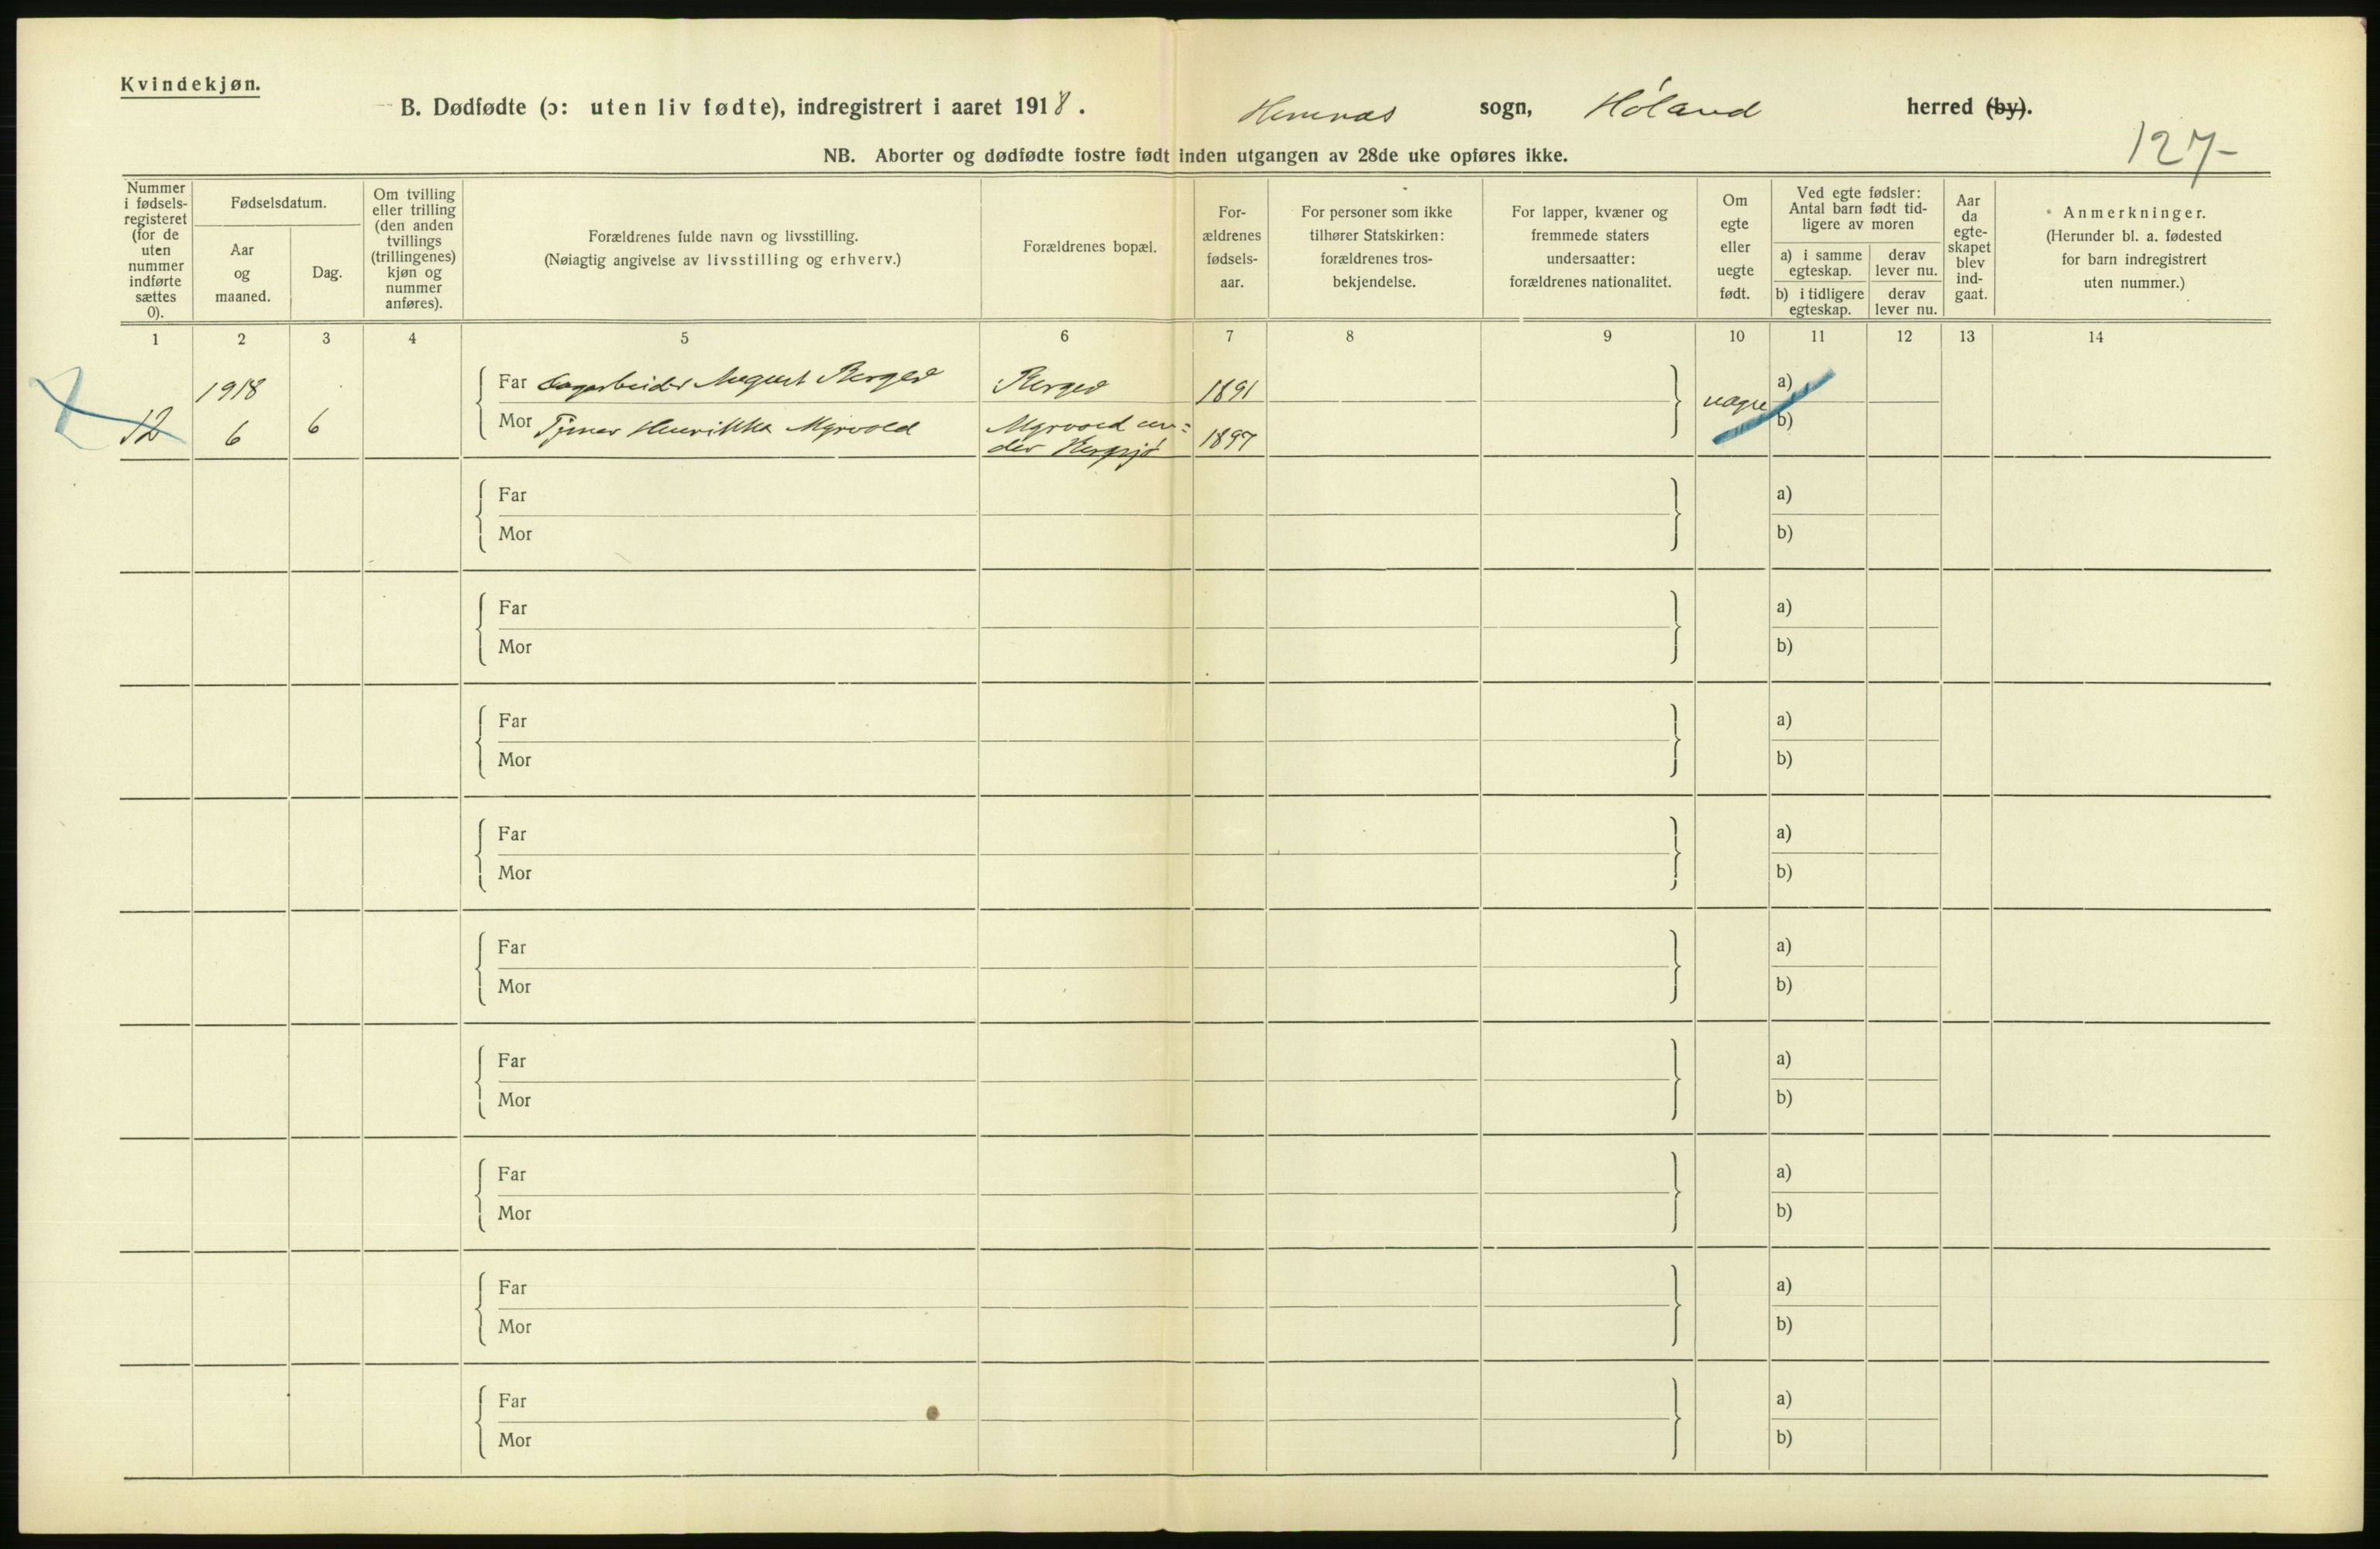 Kvindekjøn.
B. Dødfødte (ɔ: uten liv fødte), indregistrert i aaret 1918. Hemnæs sogn, Høland herred (by).
127-
NB. Aborter og dødfødte fostre født inden utgangen av 28de uke opføres ikke.
Nummer
i fødsels-
registeret
(for de
uten
nummer
indførte
sættes
0).
Fødselsdatum.
Aar
og
maaned.
Dag.
Om tvilling
eller trilling
(den anden
tvillings
(trillingenes)
kjøn og
nummer
anføres).
Forældrenes fulde navn og livsstilling.
(Nøiagtig angivelse av livsstilling og erhverv.)
Forældrenes bopæl.
For-
ældrenes
fødsels-
aar.
For personer som ikke
tilhører Statskirken:
forældrenes tros-
bekjendelse.
For lapper, kvæner og
fremmede staters
undersaatter:
forældrenes nationalitet.
Om
egte
eller
uegte
født.
Ved egte fødsler:
Antal barn født tid-
ligere av moren
a) i samme
egteskap.
derav
lever nu.
b) i tidligere
egteskap.
derav
lever nu.
Aar
da
egte-
skapet
blev
ind-
gaat.
Anmerkninger.
(Herunder bl. a. fødested
for barn indregistrert
uten nummer.)
1 2 3 4 5 6 7 8 9 10 11 12 13 14
12
1918
6
6
Far August Berger Berger 1891
Mor Henrikke Myrvold Myrvold un=
der 1897
uegte
a)
b)
Far a)
Mor b)
Far a)
Mor b)
Far a)
Mor b)
Far a)
Mor b)
Far a)
Mor b)
Far a)
Mor b)
Far a)
Mor b)
Far a)
Mor b)
Far a)
Mor b)